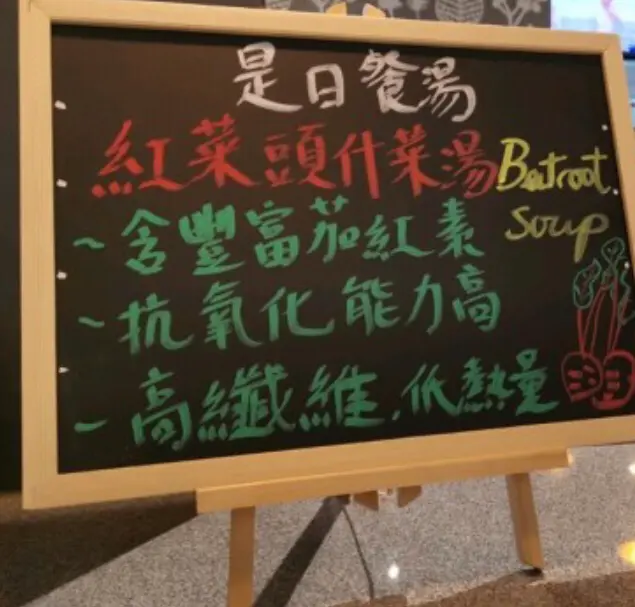 是日餐湯
紅菜頭什菜湯 Beetroot Soup
~含豐富茄紅素
~抗氧化能力高
~高纖維.低熱量